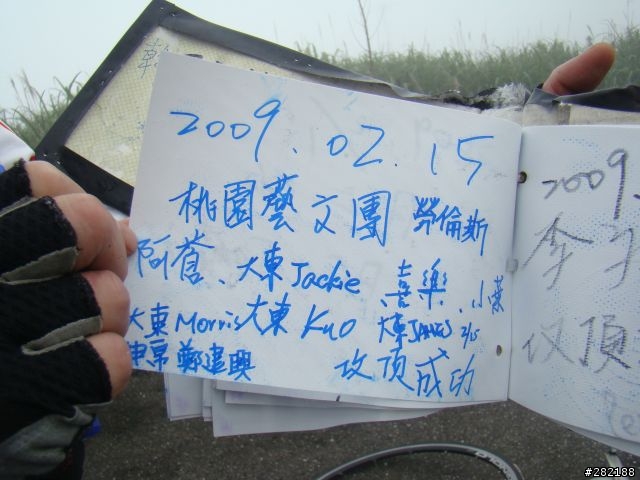 2009.02.15
桃園藝文團 勞倫斯
阿蒼、大東Jackie、喜樂、小葉
大東Morris大東Kuo 大東JAMES 2/15
鄭建興 攻頂成功
2009.
李
攻頂
#282188